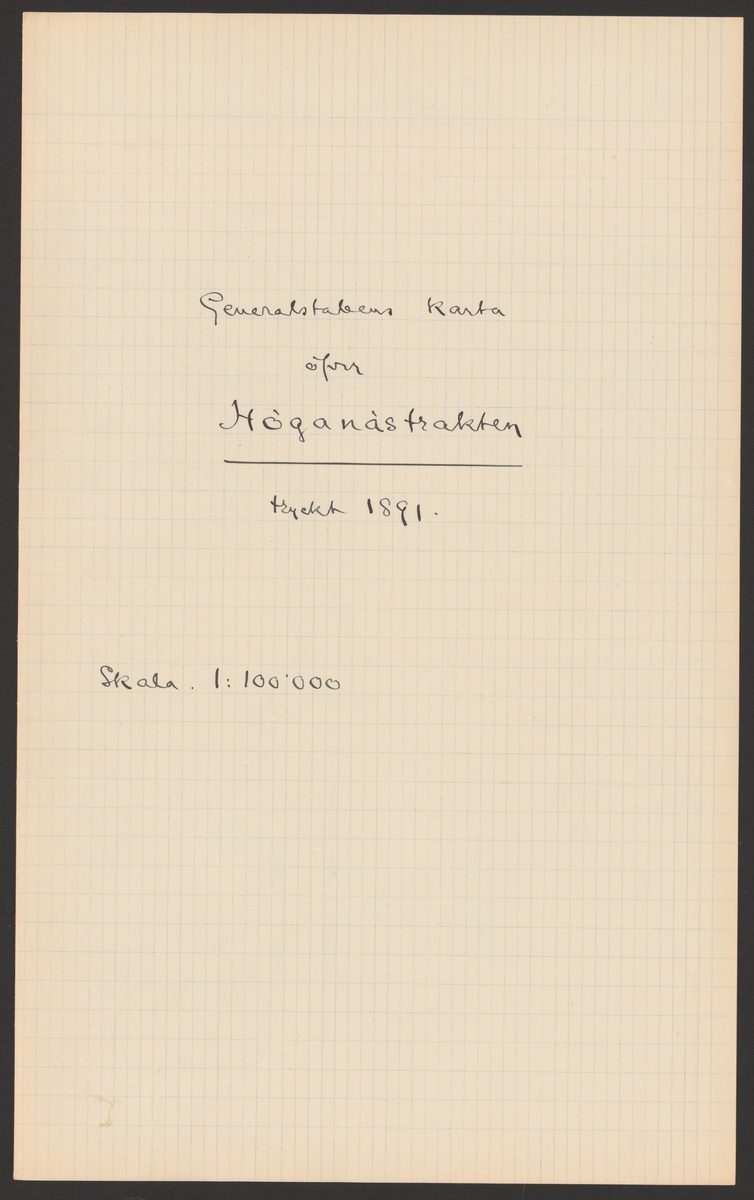 Generalstabens Karta
öfver
Höganästrakten
tryckt 1891.
Skala. 1:100'000